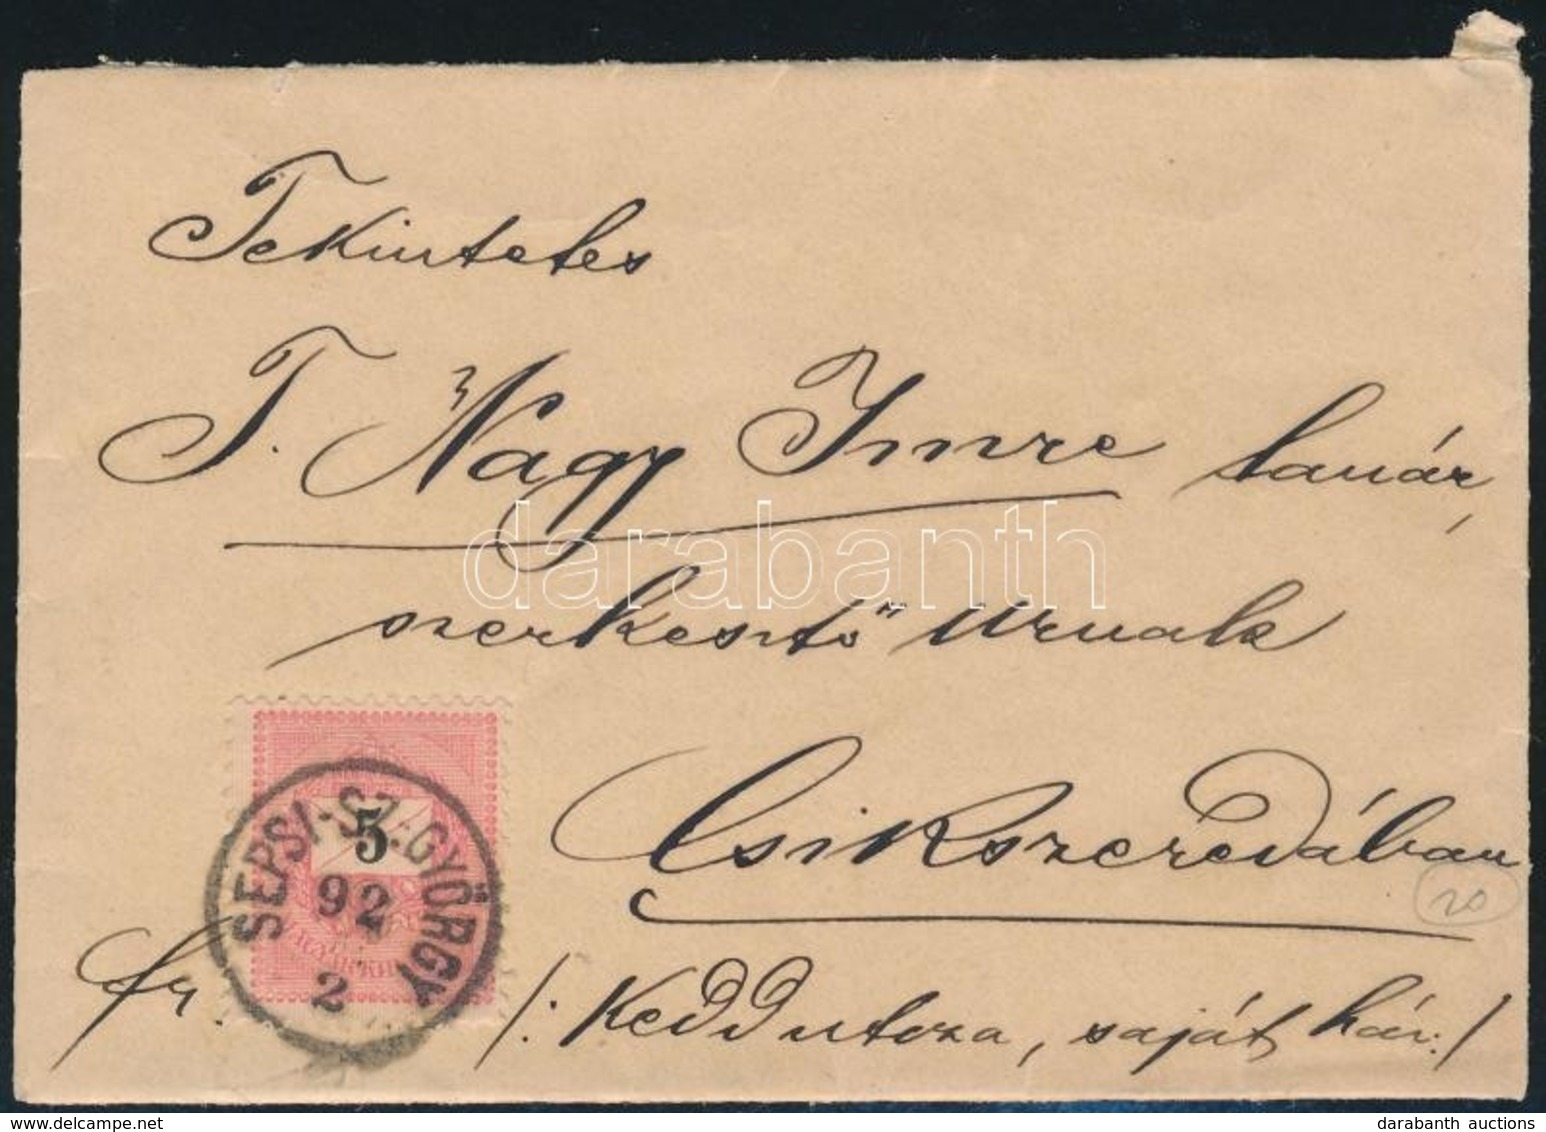 Tekintetes
T. Nagy Imre tanár,
szerkesztő urnak
Csikszeredában
20
fr. /: Kedd utcza, saját ház :/
SEPSI-SZ.-GYÖRGY
5
92
2
darabanth
delcampe.net
darabanth auctions